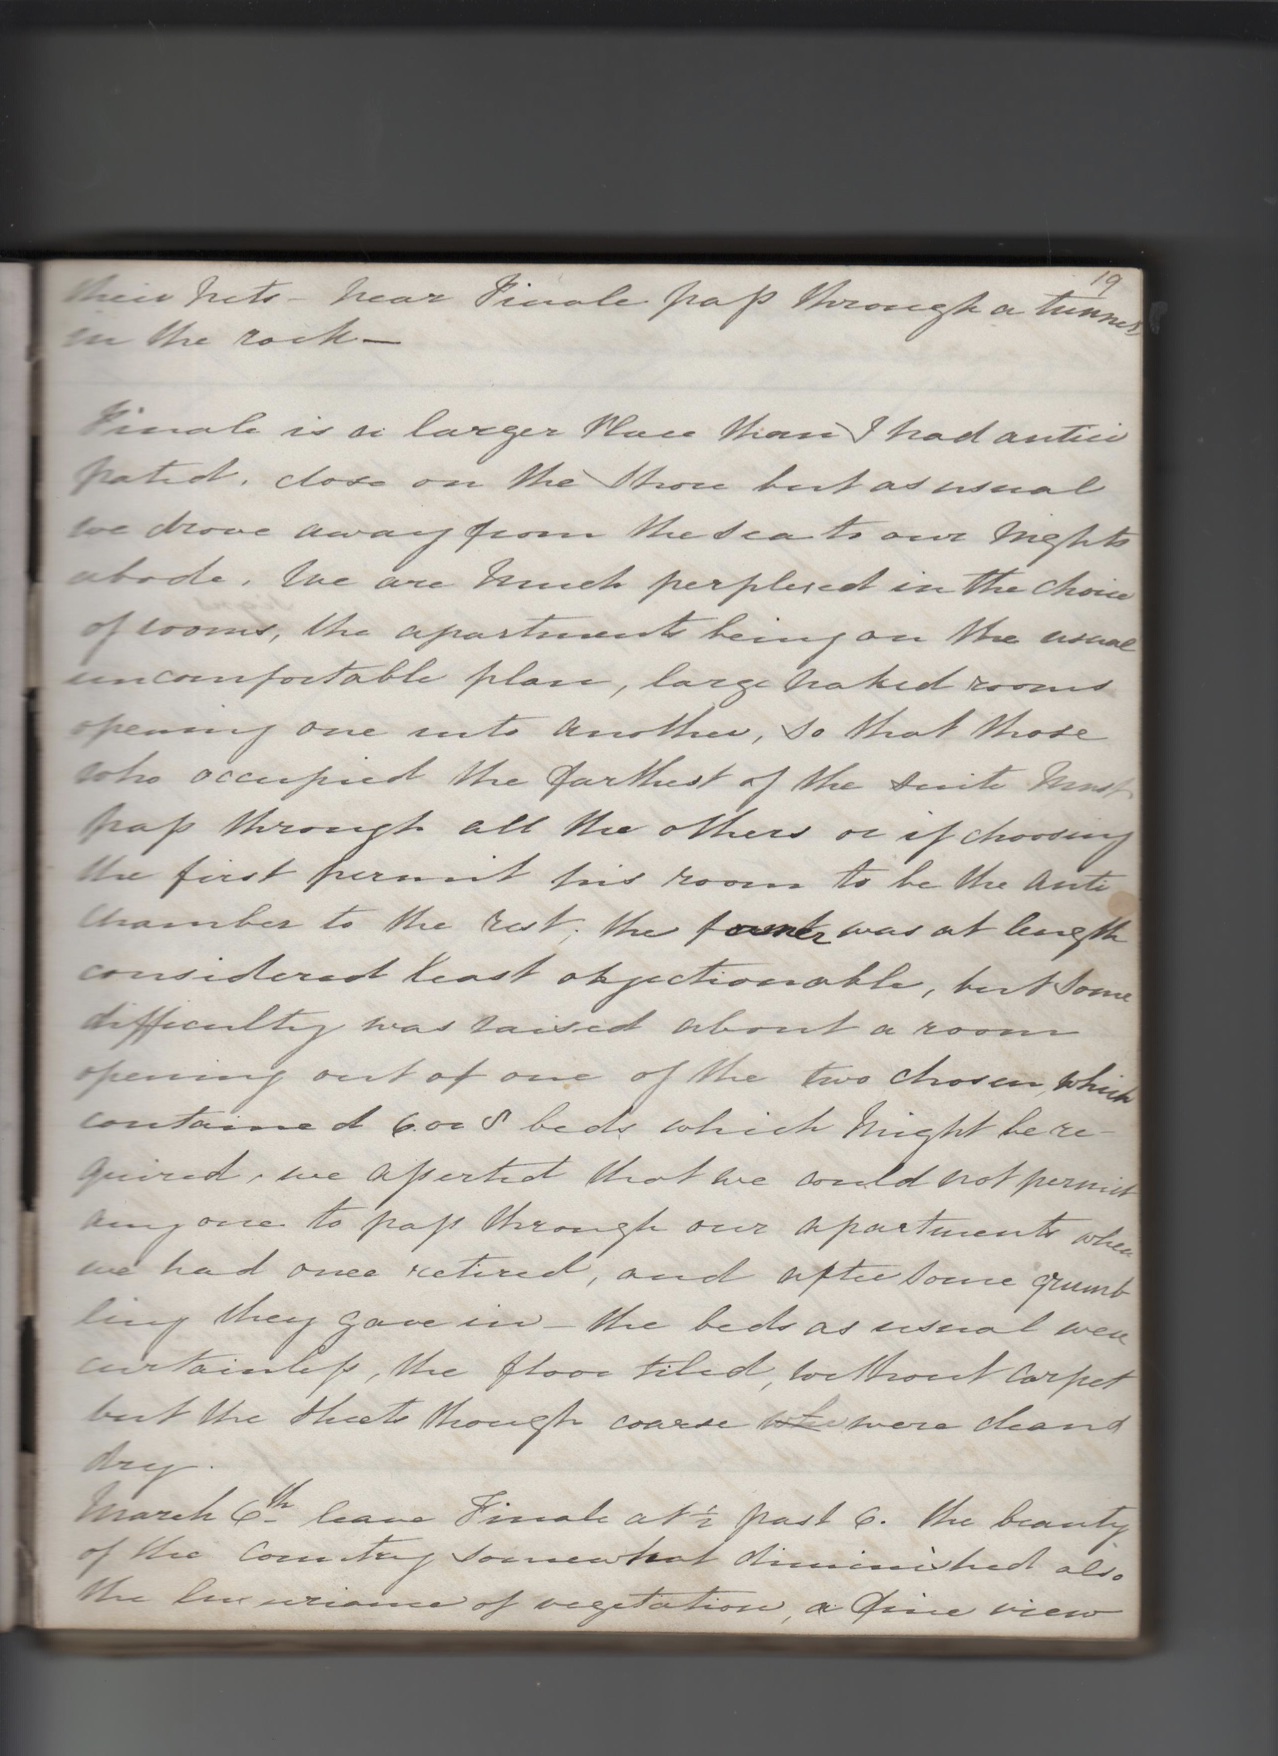 19
their nets - near Finale pass through a tunnel
in the rock —
Finale is a larger Place than I had antici
pated, close on the Shore but as usual
we drove away from the Sea to our Nights
abode. We are Much perplexed in the choice
of rooms, the apartments being on the usual
uncomfortable plan, large Naked rooms
opening one into another, so that those
who occupied the farthest of the suite Must
pass through all the others or if choosing
the first permit his room to be the Anti
chamber to the rest; the former was at length
considered least objectionable, but Some
difficulty was raised about a room
opening out of one of the two chosen, which
contained 6 or 8 beds which Might be re-
quired, we asserted that we could not permit
any one to pass through our apartments when
we had once retired, and after Some grumb
ling they gave in - the beds as usual were
curtainless, the floor tiled, without Carpet
but the Sheets though coarse were clean d
dry.
March 6th leave Finale at ½ past 6. the beauty
of the Country somewhat diminished also
the luxuriance of vegetation, a fine view